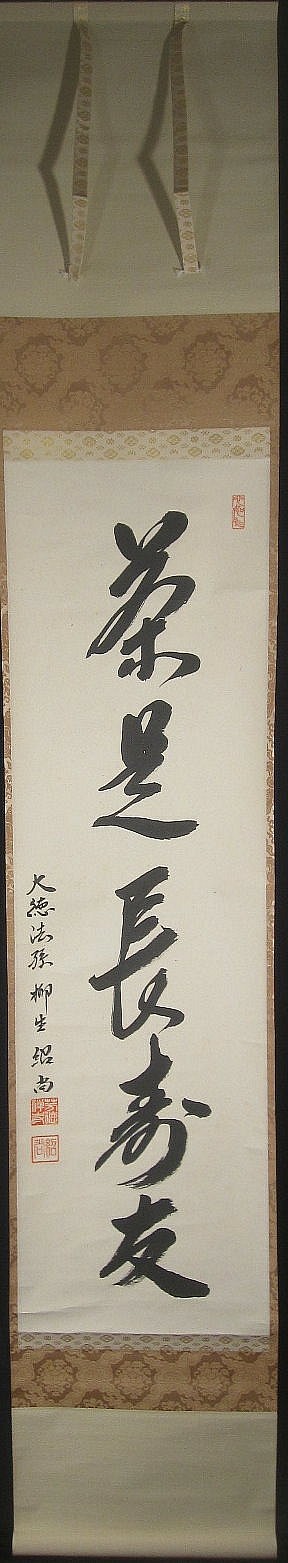 茶是長寿友
大徳法孫柳生紹尚